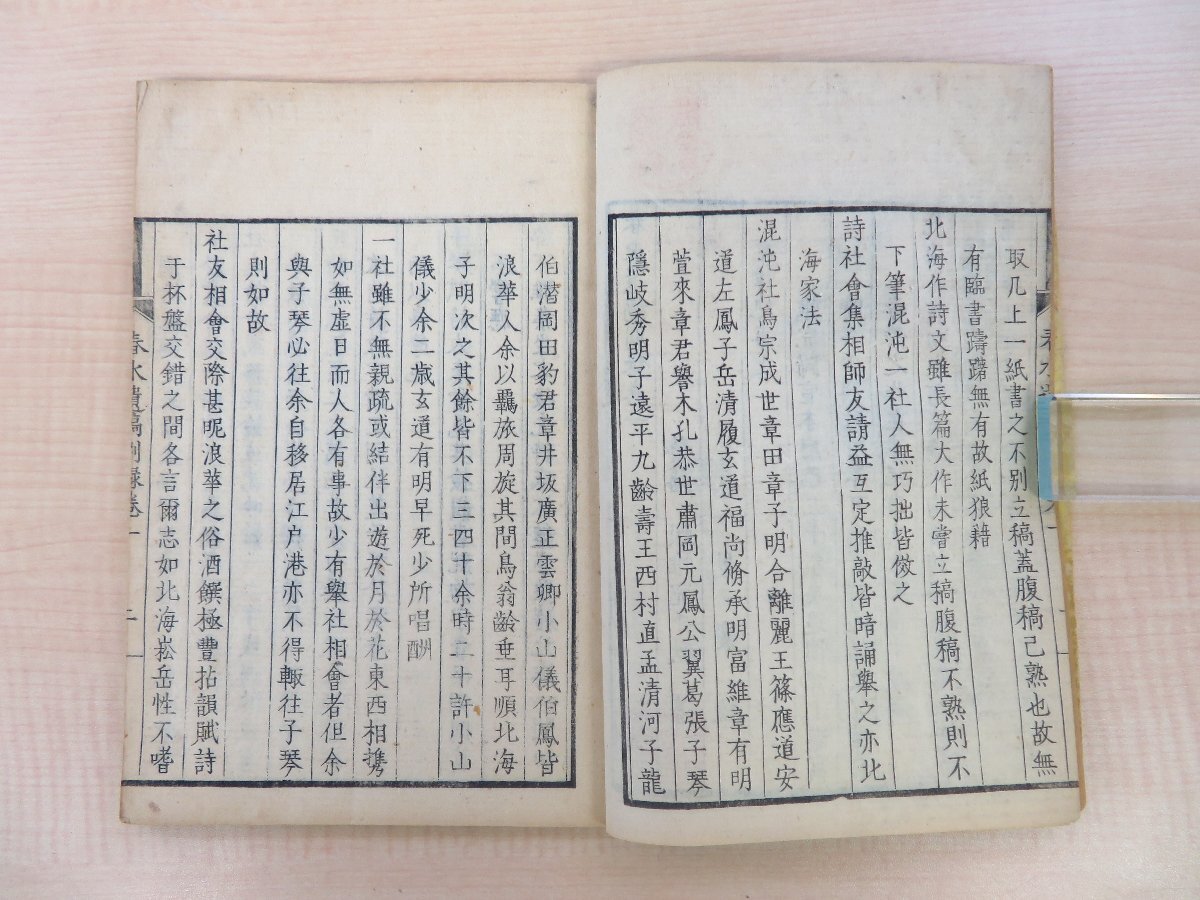 取几上一紙書之不別立稿蓋腹稿己熟也故無
有臨書躊躇無有故紙狼藉
北海作詩文雖長篇大作未嘗立稿腹稿不熟則不
下筆混沌一社人無巧拙皆傚之
詩社會集相師友請益互定推敲皆暗誦舉之亦北
海家法
混沌社鳥宗成世章田章子明合離麗王篠應道安
道左鳳子岳清履玄道福尚脩承明富維章有明
萱來章君譽木孔恭世肅岡元鳳公翼葛張子琴
隱岐秀明子遠平九齡壽王西村直孟清河子龍
伯潛岡田豹君章井坂廣正雲卿小山儀伯鳳皆
浪華人余以羈旅周旋其間鳥翁齡垂耳順北海
子明次之其餘皆不下三四十余時二十許小山
儀少余二歲玄道有明早死少所唱酬
一社雖不無親疏或結伴出遊於月於花東西相携
如無虛日而人各有事故少有舉社相會者但余
與子琴必往余自移居江户港亦不得輙往子琴
則如故
社友相會交際甚昵浪華之俗酒饌極豐拈韻賦詩
于杯盤交錯之間各言爾志如北海菘岳性不嗜
春水遺稿別錄卷一
二